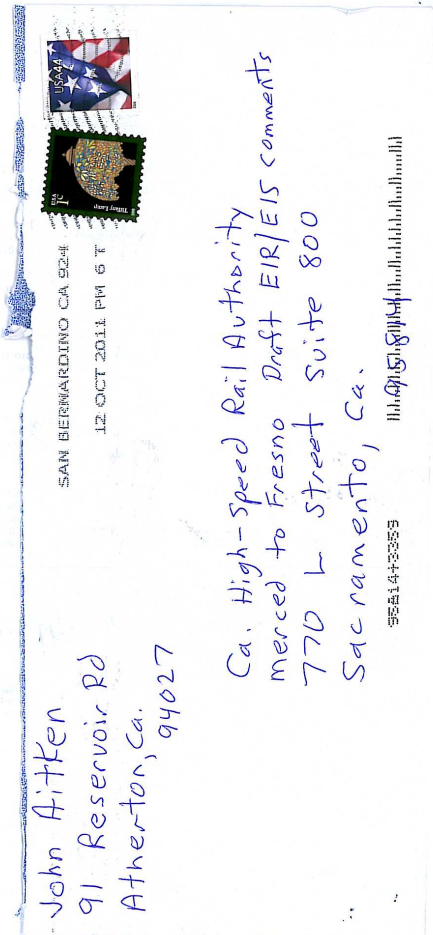 John Aitken
91 Reservoir Rd
Atherton, Ca.
94027
SAN BERNARDINO CA 924
12 OCT 2011 PM 6 T
USA
1c
Tiffany Lamp
USA44
Ca. High-Speed Rail Authority
Merced to Fresno Draft EIR/EIS comments
770 L Street Suite 800
Sacramento, Ca.
95814
95814+3359